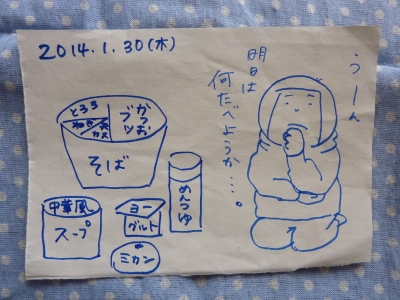 2014.1.30(木)
うーん
明日は
何たべようか…。
とろろ
ねぎ
天カス
かつお
ブシ
そば
めんつゆ
中華風
スープ
ヨー
グルト
ミカン